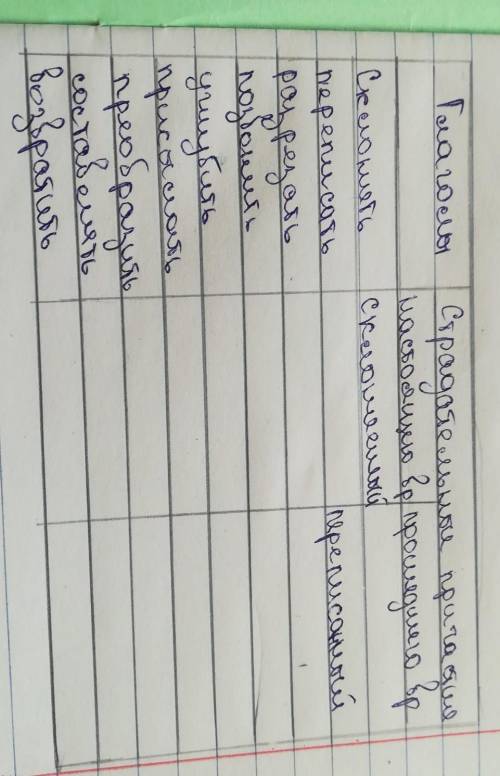 Глаголы Страдательные причастия
настоящего вр прошедшего вр
Склонять склоняемый
переписать переписанный
разрезать
позвонить
углубить
присылать
преобразить
составлять
возвратить